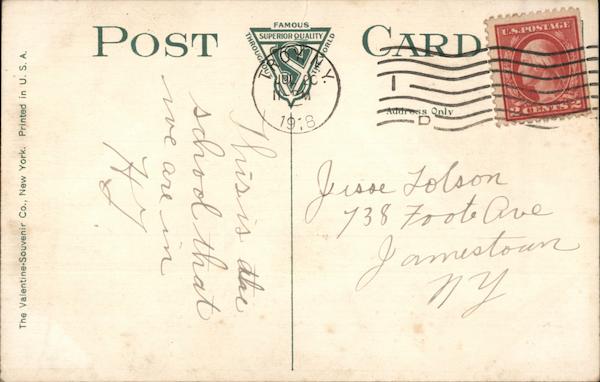 POST CARD
FAMOUS
SUPERIOR QUALITY
THROUGHOUT THE WORLD
TROY, N.Y.
1918
U.S. POSTAGE
2 CENTS 2
Address Only
The Valentine-Souvenir Co., New York. Printed in U. S. A.
This is the
school that
we are in
Jesse Tolson
738 Foote Ave
Jamestown
NY